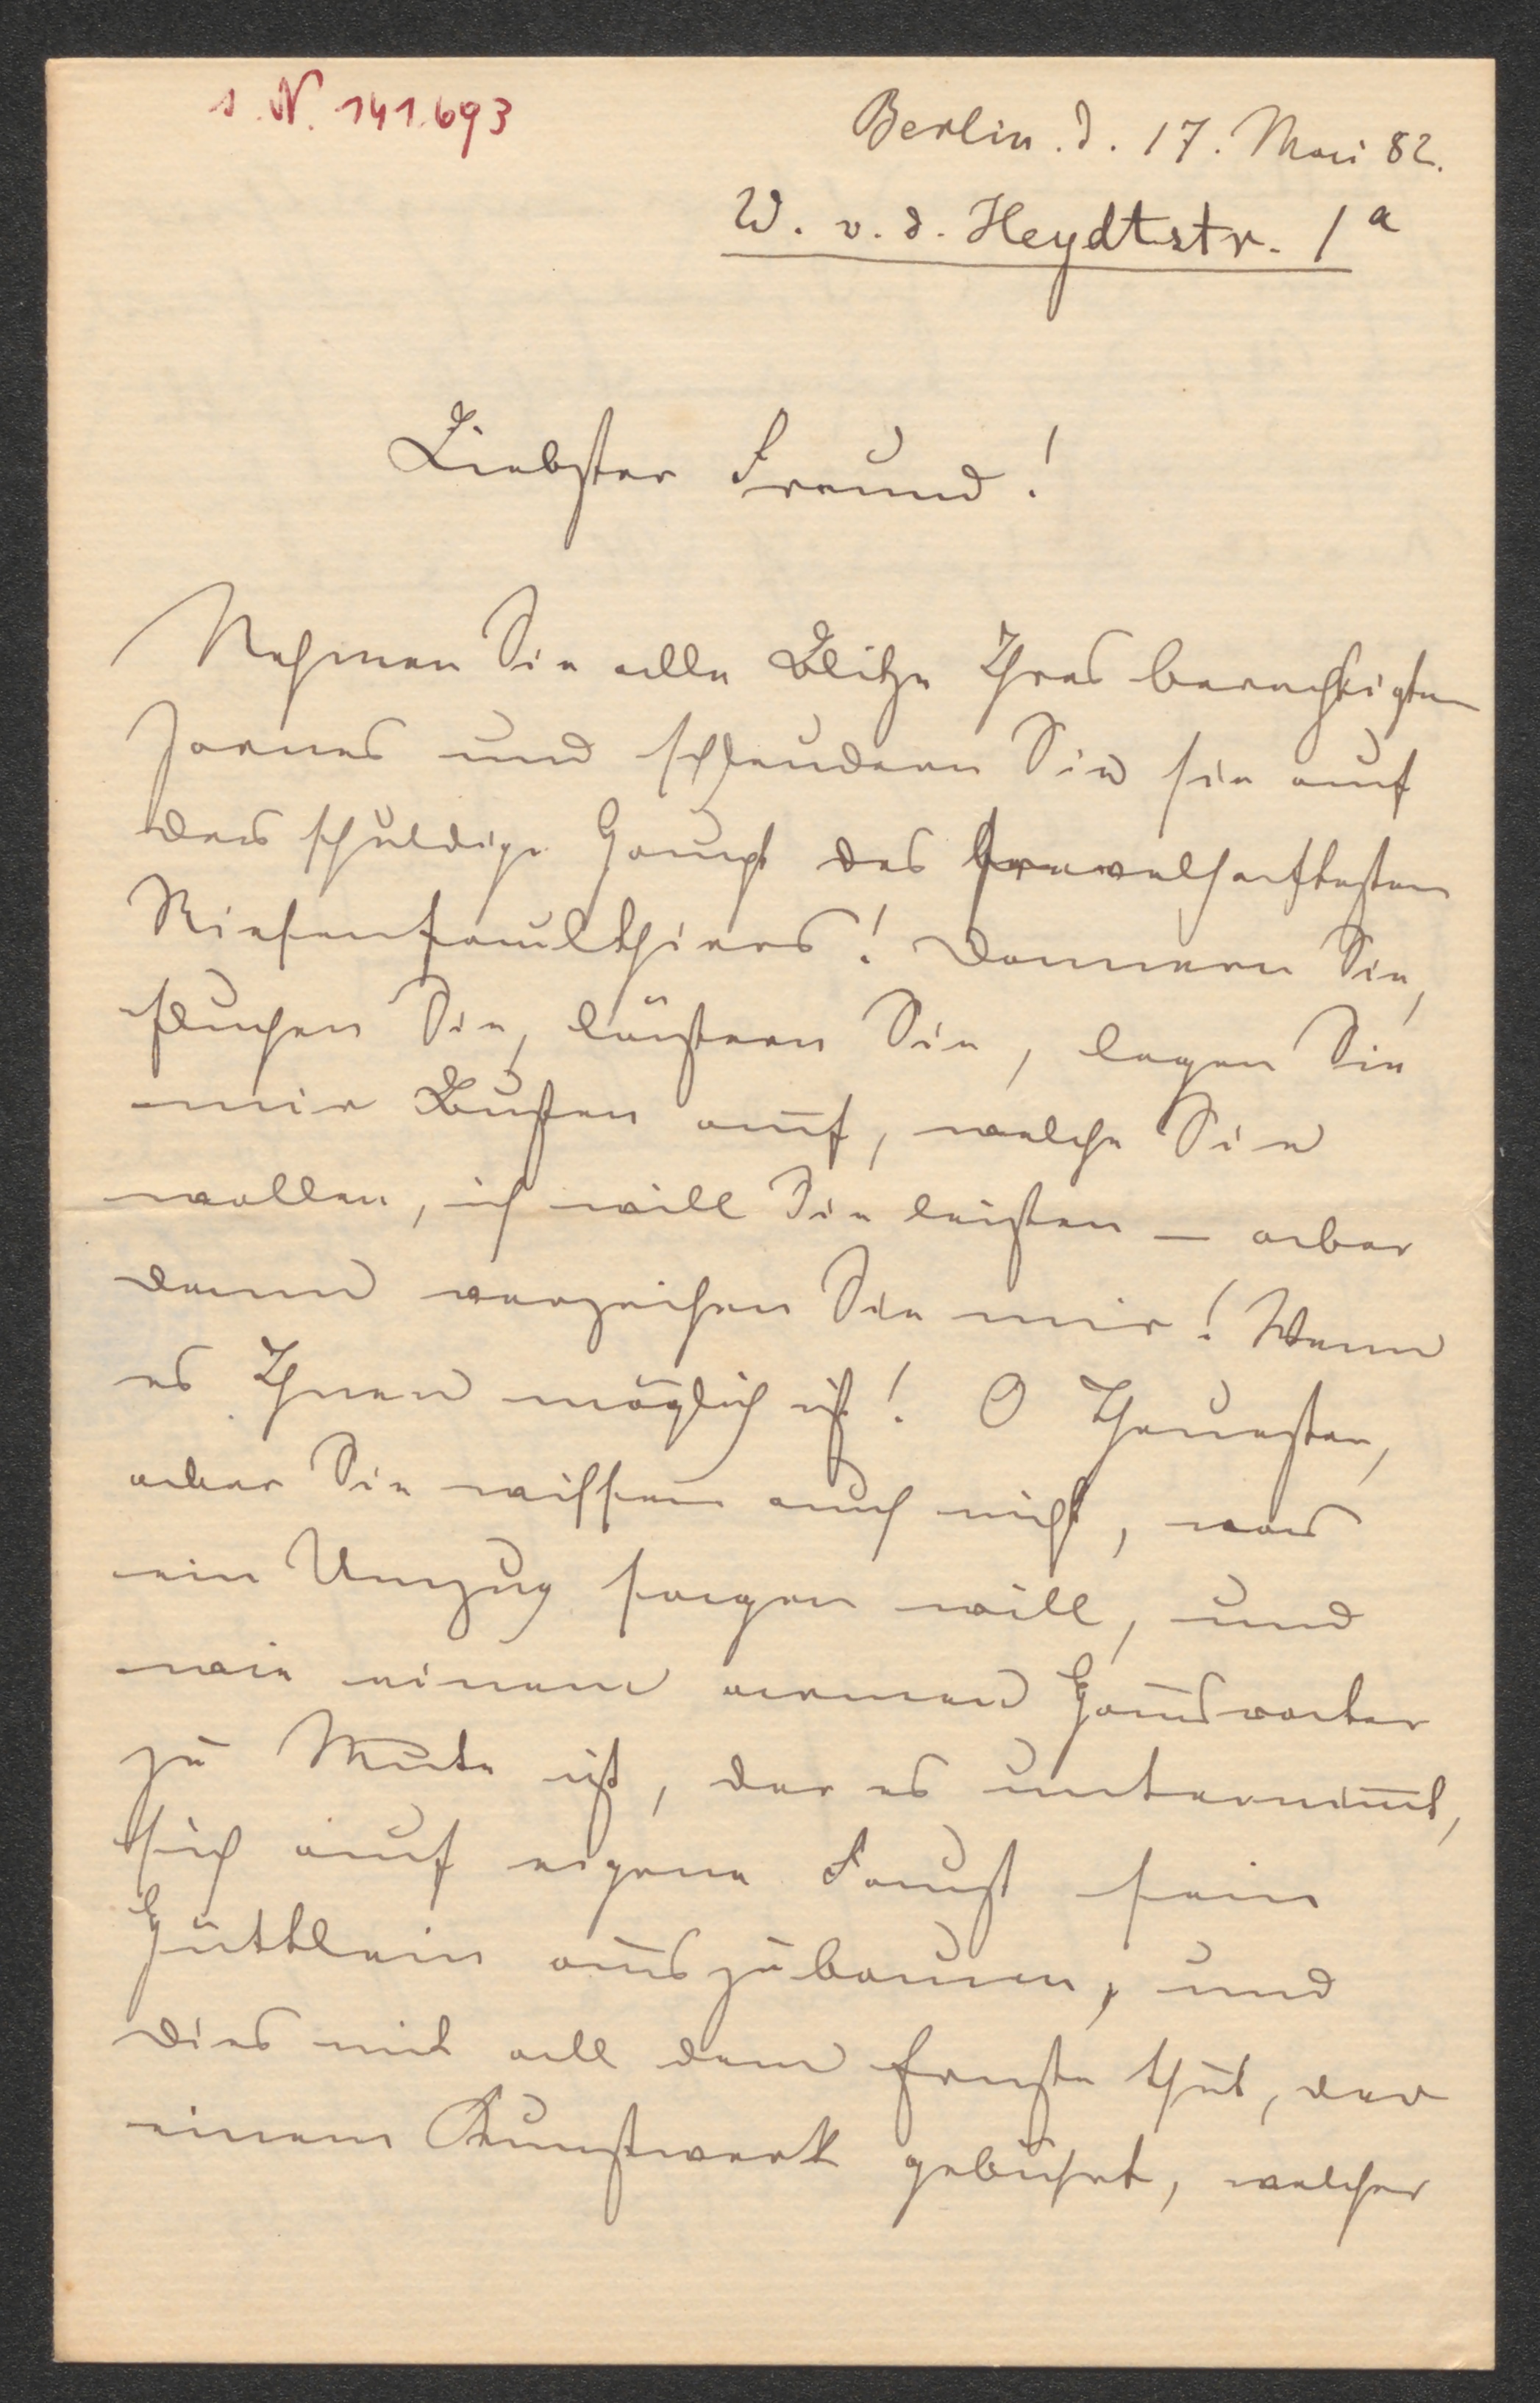 s. N. 141.693
Berlin. d. 17. Mai 82.
W. v. d. Heydtstr. 1a
Liebster Freund!
Nehmen Sie alle Blitze Ihres berechtigten
Zornes und schleudern Sie sie auf
das schuldige Haupt des frevelhaftesten
Riesenfaulthieres! Donnern Sie,
fluchen Sie, lästern Sie, legen Sie
mir Bußen auf, welche Sie
wollen, ich will Sie leisten — aber
dann verzeihen Sie mir! Wenn
es Ihnen möglich ist! O Theuerster,
aber Sie wissen auch nicht, was
ein Umzug sagen will, und
wie einem armen Hausvater
zu Mute ist, der es unternim̅t,
sich auf eigene Faust sein
Hüttlein auszubauen, und
dies mit all dem Ernste thut, der
einem Kunstwerk gebührt, welcher